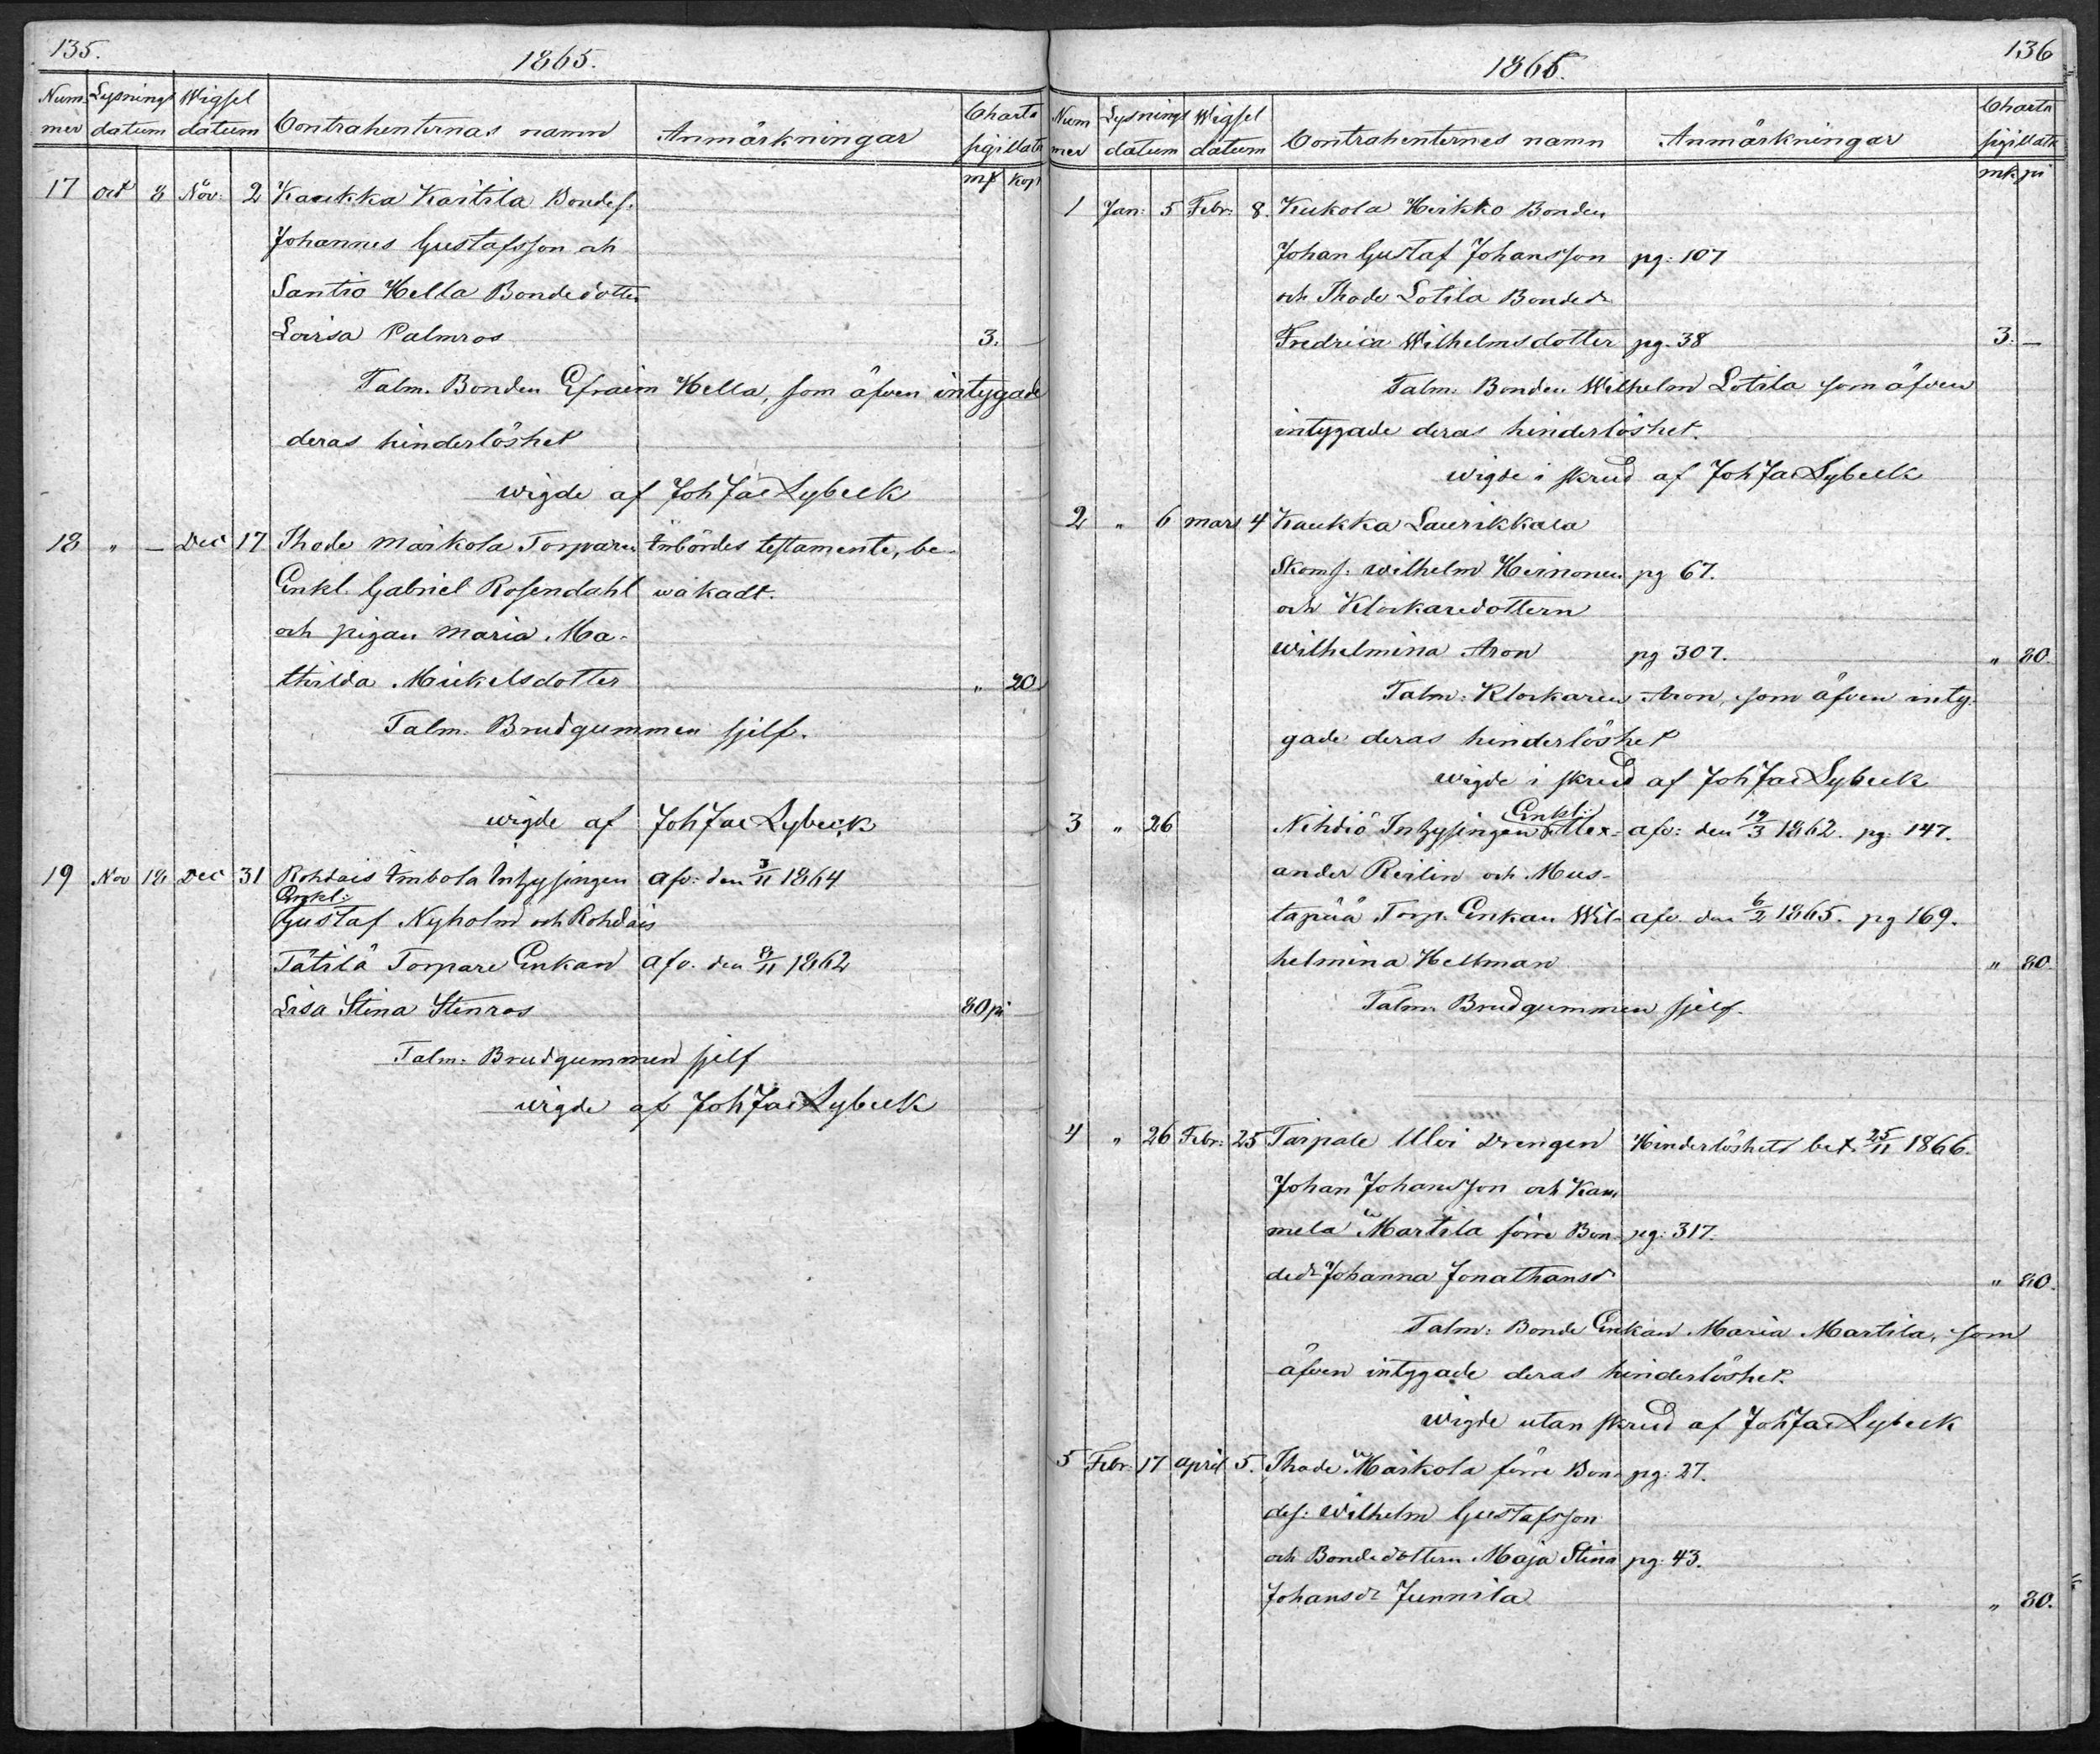 135.
1865.
Num Lysnings Wigsel Contrahenternas namn Anmärkningar Charta
mer datum datum sigillata
mk kop
17 Oct 8 Nov. 2 Kaukka Kaitila Bondes.
Johannes Gustafsson och
Santio Hella Bondedotter
Lovisa Palmros 3.
Talm. Bonden Efraim Hella, som äfven intygade
deras hinderlöshet
wigde af Joh Jac Lybeck
18 " — Dec 17 Thode Maikola Torparen Inbördes testamente, be-
Enkl. Gabriel Rosendahl wakadt.
och pigan Maria Ma-
thilda Mickelsdotter " 20
Talm. Brudgummen sjelf.
wigde af Joh Jac Lybeck
19 Nov 18 Dec 31 Rohdais Imbola Inhysingen afv: den 3/11 1864
Enkl:
Gustaf Nyholm och Rohdais
Tätilä Torpare Enkan afv. den 8/11 1862
Lisa Stina Stenros 80 pi
Talm. Brudgummen sjelf
wigde af Joh Jac Lybeck
136
1866.
Num Lysnings Wigsel Contrahenternes namn Anmärkningar Charta
mer datum datum sigillata
mk pi
1 Jan: 5 Febr: 8. Kukola Heikko Bonden
Johan Gustaf Johansson pg: 107
och Thode Lotila Bonded:r
Fredrica Wilhelmsdotter pg. 38 3. —
Talm: Bonden Wilhelm Lotila som äfven
intygade deras hinderlöshet.
wigde i skrud af Joh Jac Lybeck
2 " 6 mars 4 Kaukka Laurikkala
Skom.s: Wilhelm Heinonen pg 67.
och Klockaredottern
Wilhelmina Aron pg 307. " 80.
Talm: Klockaren Aron, som äfven inty-
gade deras hinderlöshet
wigde i skrud af Joh Jac Lybeck
Enkl:
3 " 26 Nihdiö Inhysingen Alex- afv: den 19/3 1862. pg: 147.
ander Reilin och Mus-
tapää Torp. Enkan Wil- afv. den 6/2 1865. pg 169.
helmina Hellman " 80.
Talm. Brudgummen sjelf.
4 " 26 Febr: 25 Taipale Ulvi drengen Hinderlöshets bet. 25/11 1866.
Johan Johansson och Kam
mela Martila förre Bon- pg: 317.
ded:r Johanna Jonathansd:r " 80.
Talm: Bonde Enkan Maria Martila, som
äfven intygade deras hinderlöshet.
wigde utan skrud af Joh Jac Lybeck
5 Febr: 17 april 5. Thode Maikola förre Bon- pg: 27.
des: Wilhelm Gustafsson
och Bondedottern Maja Stina pg: 43.
Johansd:r Junnila " 80.